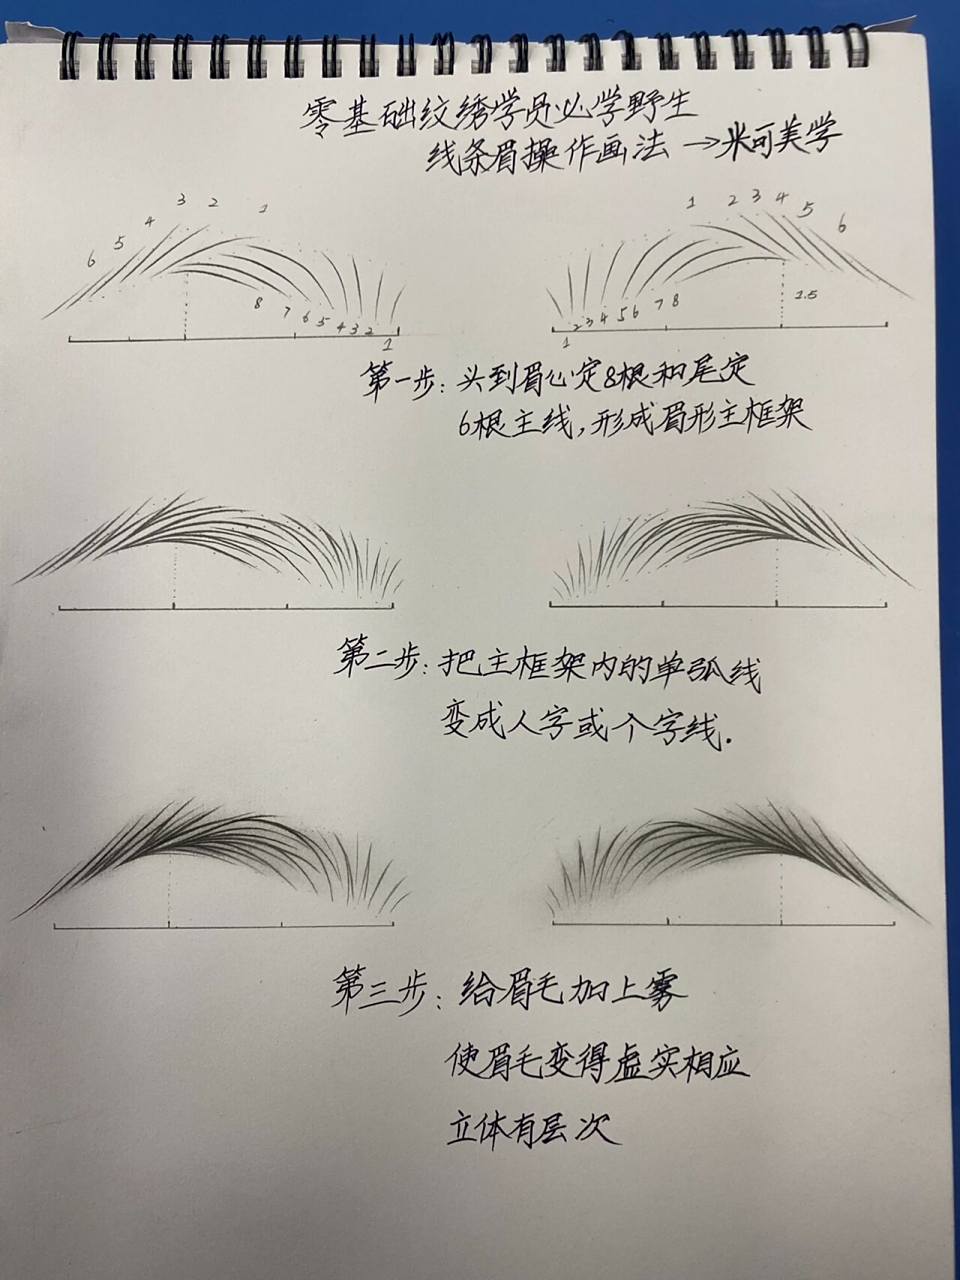 零基础纹绣学员必学野生
线条眉操作画法→米可美学
6 5 4 3 2 1
1 2 3 4 5 6
8 7 6 5 4 3 2 1
1 2 3 4 5 6 7 8
1.5
第一步:头到眉心定8根和尾定
6根主线,形成眉形主框架
第二步:把主框架内的单弧线
变成人字或个字线.
第三步:给眉毛加上雾
使眉毛变得虚实相应
立体有层次